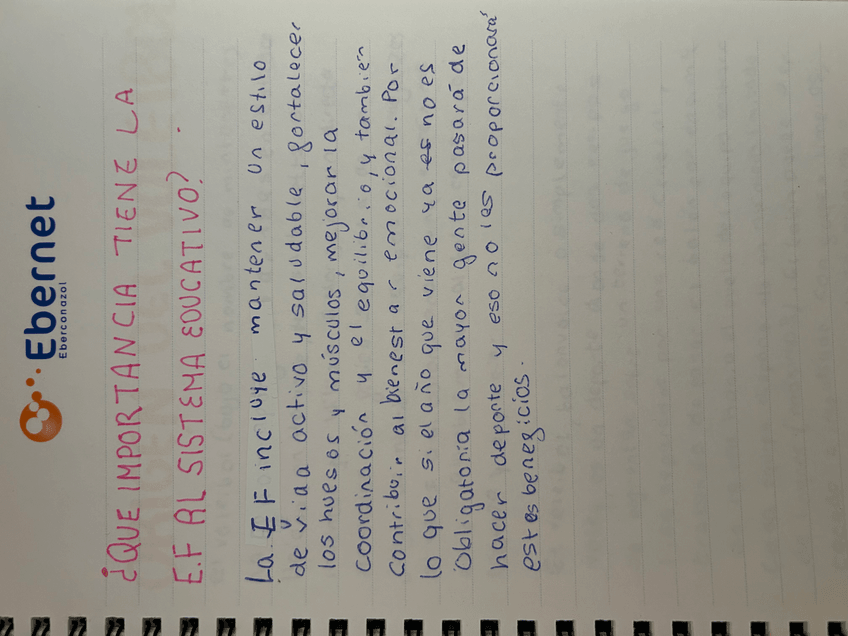 Ebernet
Eberconazol
¿QUE IMPORTANCIA TIENE LA
E.F AL SISTEMA EDUCATIVO?
La EF incluye mantener un estilo
de vida activo y saludable, fortalecer
los huesos y músculos, mejorar la
coordinación y el equilibrio, y también
contribuir al bienestar emocional. Por
lo que si el año que viene ya es no es
Obligatoria la mayor gente pasará de
hacer deporte y eso no les proporcionará
estes beneficios.